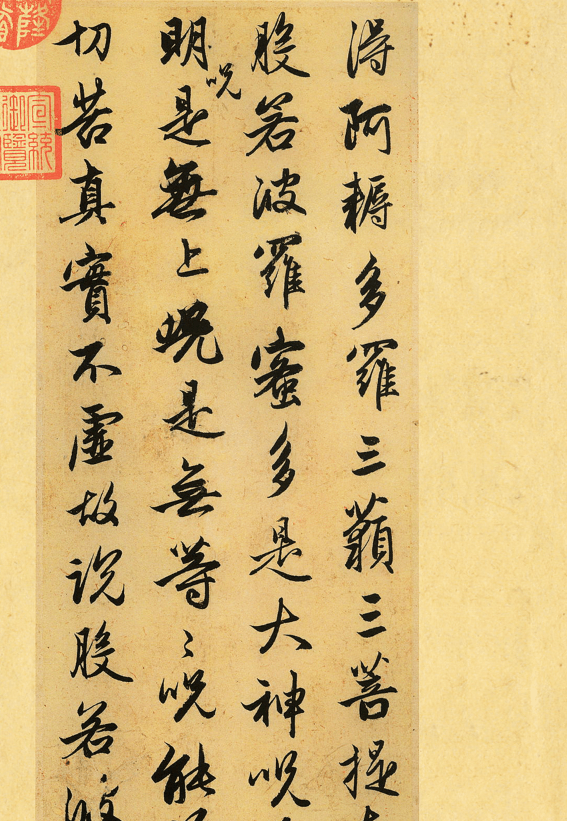 得阿耨多羅三藐三菩提
般若波羅蜜多是大神呪
明呪是無上呪是無等〻呪能
切苦真實不虛故說般若波
宣統
御覽